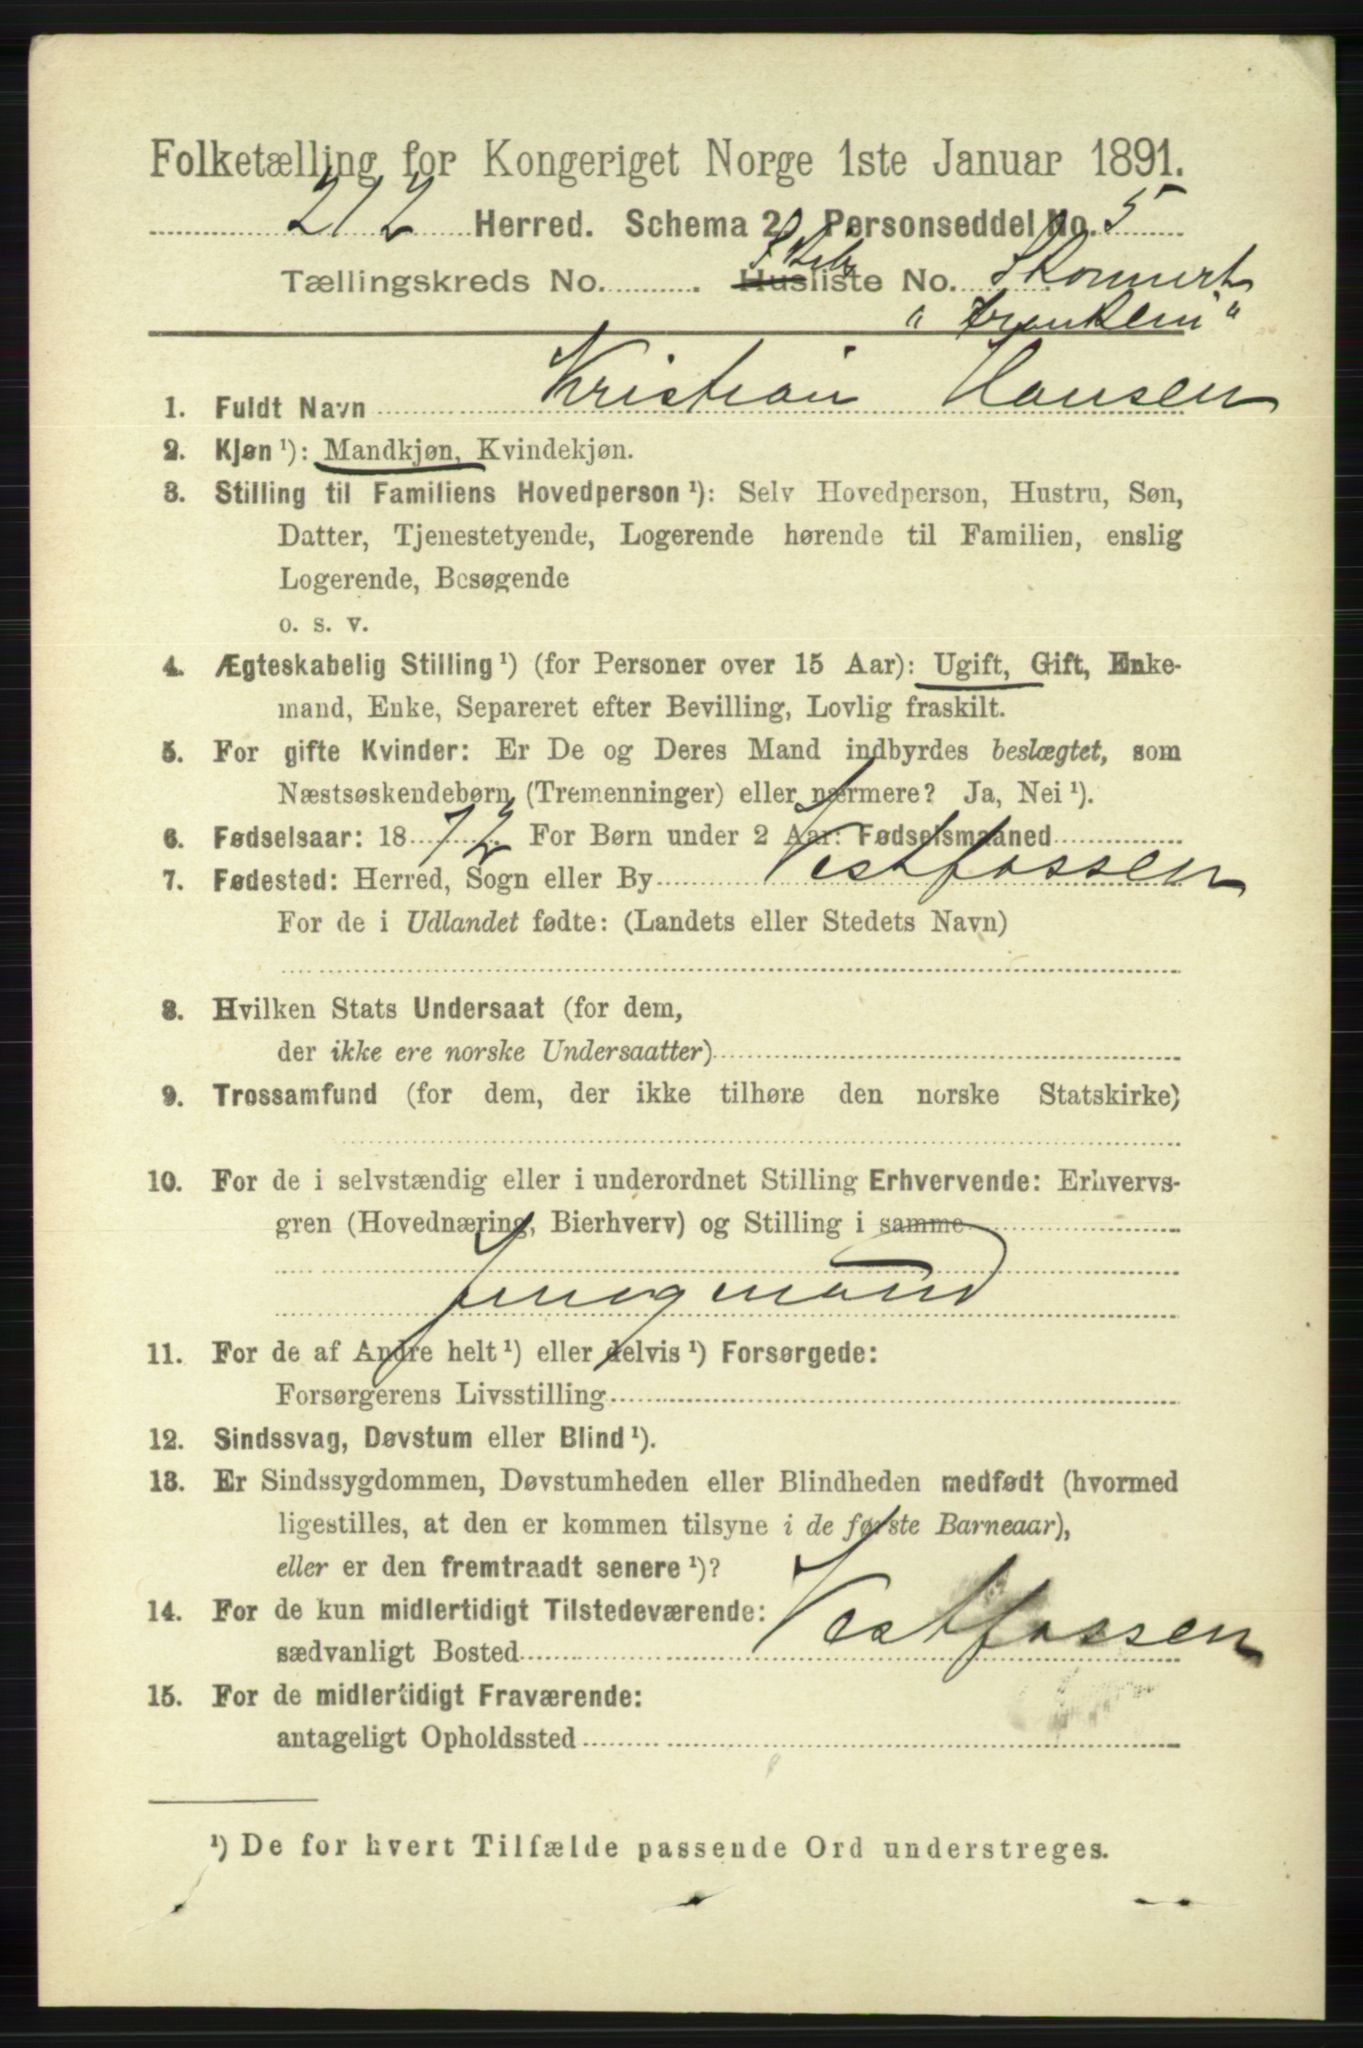 Folketælling for Kongeriget Norge 1ste Januar 1891.
212 Herred. Schema 2. Personseddel No. 5
Tællingskreds No. Husliste No. Skonnert
" Franklin "
1. Fuldt Navn Kristian Hansen
2. Kjøn ¹): Mandkjøn, Kvindekjøn.
3. Stilling til Familiens Hovedperson ¹): Selv Hovedperson, Hustru, Søn,
Datter, Tjenestetyende, Logerende hørende til Familien, enslig
Logerende, Besøgende
o. s. v.
4. Ægteskabelig Stilling ¹) (for Personer over 15 Aar): Ugift, Gift, Enke-
mand, Enke, Separeret efter Bevilling, Lovlig fraskilt.
5. For gifte Kvinder: Er De og Deres Mand indbyrdes beslægtet, som
Næstsøskendebørn (Tremenninger) eller nærmere? Ja, Nei ¹).
6. Fødselsaar: 1872 For Børn under 2 Aar: Fødselsmaaned
7. Fødested: Herred, Sogn eller By Vestfossen
For de i Udlandet fødte: (Landets eller Stedets Navn)
8. Hvilken Stats Undersaat (for dem,
der ikke ere norske Undersaatter)
9. Trossamfund (for dem, der ikke tilhøre den norske Statskirke)
10. For de i selvstændig eller i underordnet Stilling Erhvervende: Erhvervs-
gren (Hovednæring, Bierhverv) og Stilling i samme
Jungmand
11. For de af Andre helt ¹) eller delvis ¹) Forsørgede:
Forsørgerens Livsstilling
12. Sindssvag, Døvstum eller Blind ¹).
13. Er Sindssygdommen, Døvstumheden eller Blindheden medfødt (hvormed
ligestilles, at den er kommen tilsyne i de første Barneaar),
eller er den fremtraadt senere ¹)?
14. For de kun midlertidigt Tilstedeværende:
sædvanligt Bosted Vestfossen
15. For de midlertidigt Fraværende:
antageligt Opholdssted
¹) De for hvert Tilfælde passende Ord understreges.